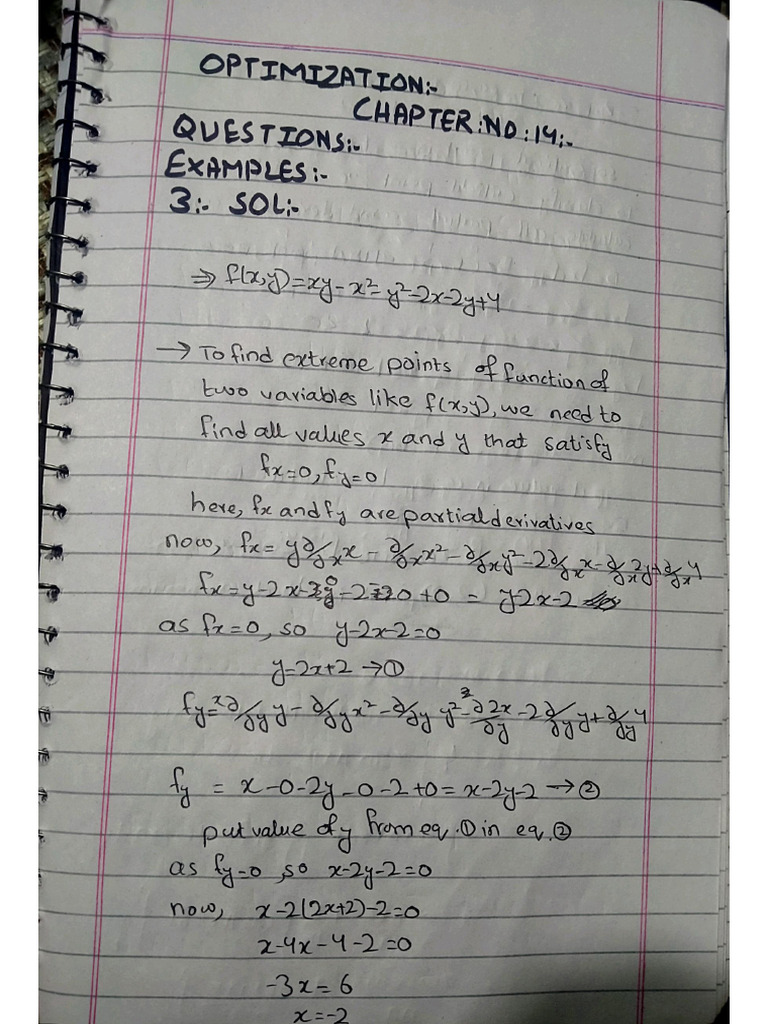 OPTIMIZATION:-
CHAPTER:NO:14:-
QUESTIONS:-
EXAMPLES:-
3:- SOL:-
⇒ f(x,y)=xy-x²-y²-2x-2y+4
→ To find extreme points of function of
two variables like f(x,y), we need to
find all values x and y that satisfy
fx=0, fy=0
here, fx and fy are partial derivatives
now, fx= y∂/∂x x - ∂/∂x x² - ∂/∂x y² - 2∂/∂x x - ∂/∂x 2y + ∂/∂x 4
fx=y-2x-0-2-0+0 = y-2x-2
as fx=0, so y-2x-2=0
y=2x+2 →①
fy= x∂/∂y y - ∂/∂y x² - ∂/∂y y² - ∂2x/∂y - 2∂/∂y y + ∂/∂y 4
fy = x-0-2y-0-2+0 = x-2y-2 →②
put value of y from eq.① in eq.②
as fy=0, so x-2y-2=0
now, x-2(2x+2)-2=0
x-4x-4-2=0
-3x=6
x=-2